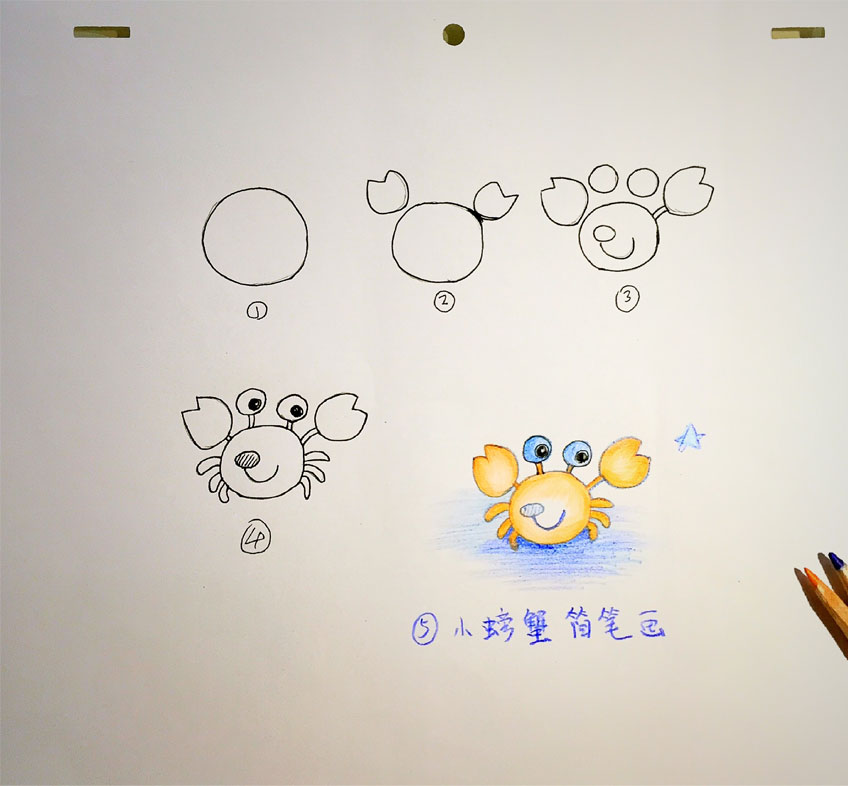 ①
②
③
④
⑤小螃蟹简笔画